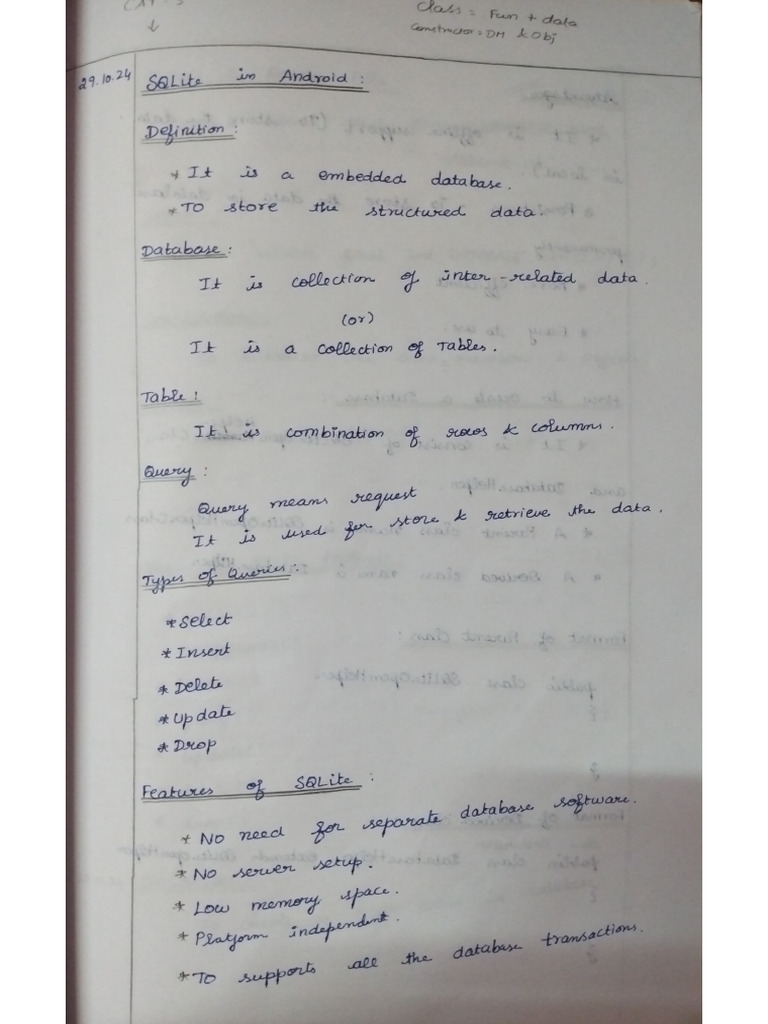 Class = Fun + data
Constructor = DM & Obj
29.10.24
SQLite in Android :
Definition :
* It is a embedded database.
* TO store the structured data.
Database :
It is collection of inter-related data.
(or)
It is a collection of Tables.
Table :
It is combination of rows & columns.
Query :
Query means request
It is used for store & retrieve the data.
Types of Queries :
* Select
* Insert
* Delete
* Update
* Drop
Features of SQLite :
* No need for separate database software.
* No server setup.
* Low memory space.
* Platform independent.
* To supports all the database transactions.